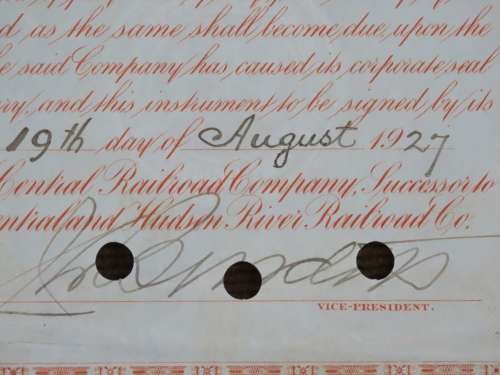 d as the same shall become due, upon the
e said Company has caused its corporate seal
ry, and this instrument to be signed by its
19th day of August 1927
Central Railroad Company, Successor to
entral and Hudson River Railroad Co.
VICE-PRESIDENT.